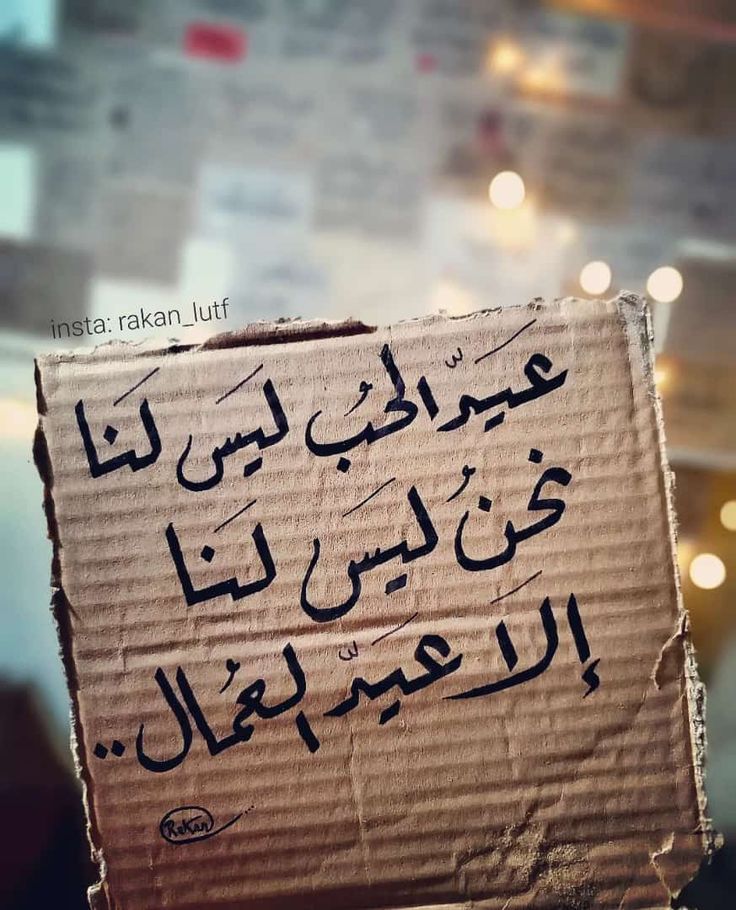 insta: rakan_lutf
عيَدّ الحُب ليَس لنَا
نحنُ ليسَ لنَا
إلاَ عيَدّ العُمال..
Rakan